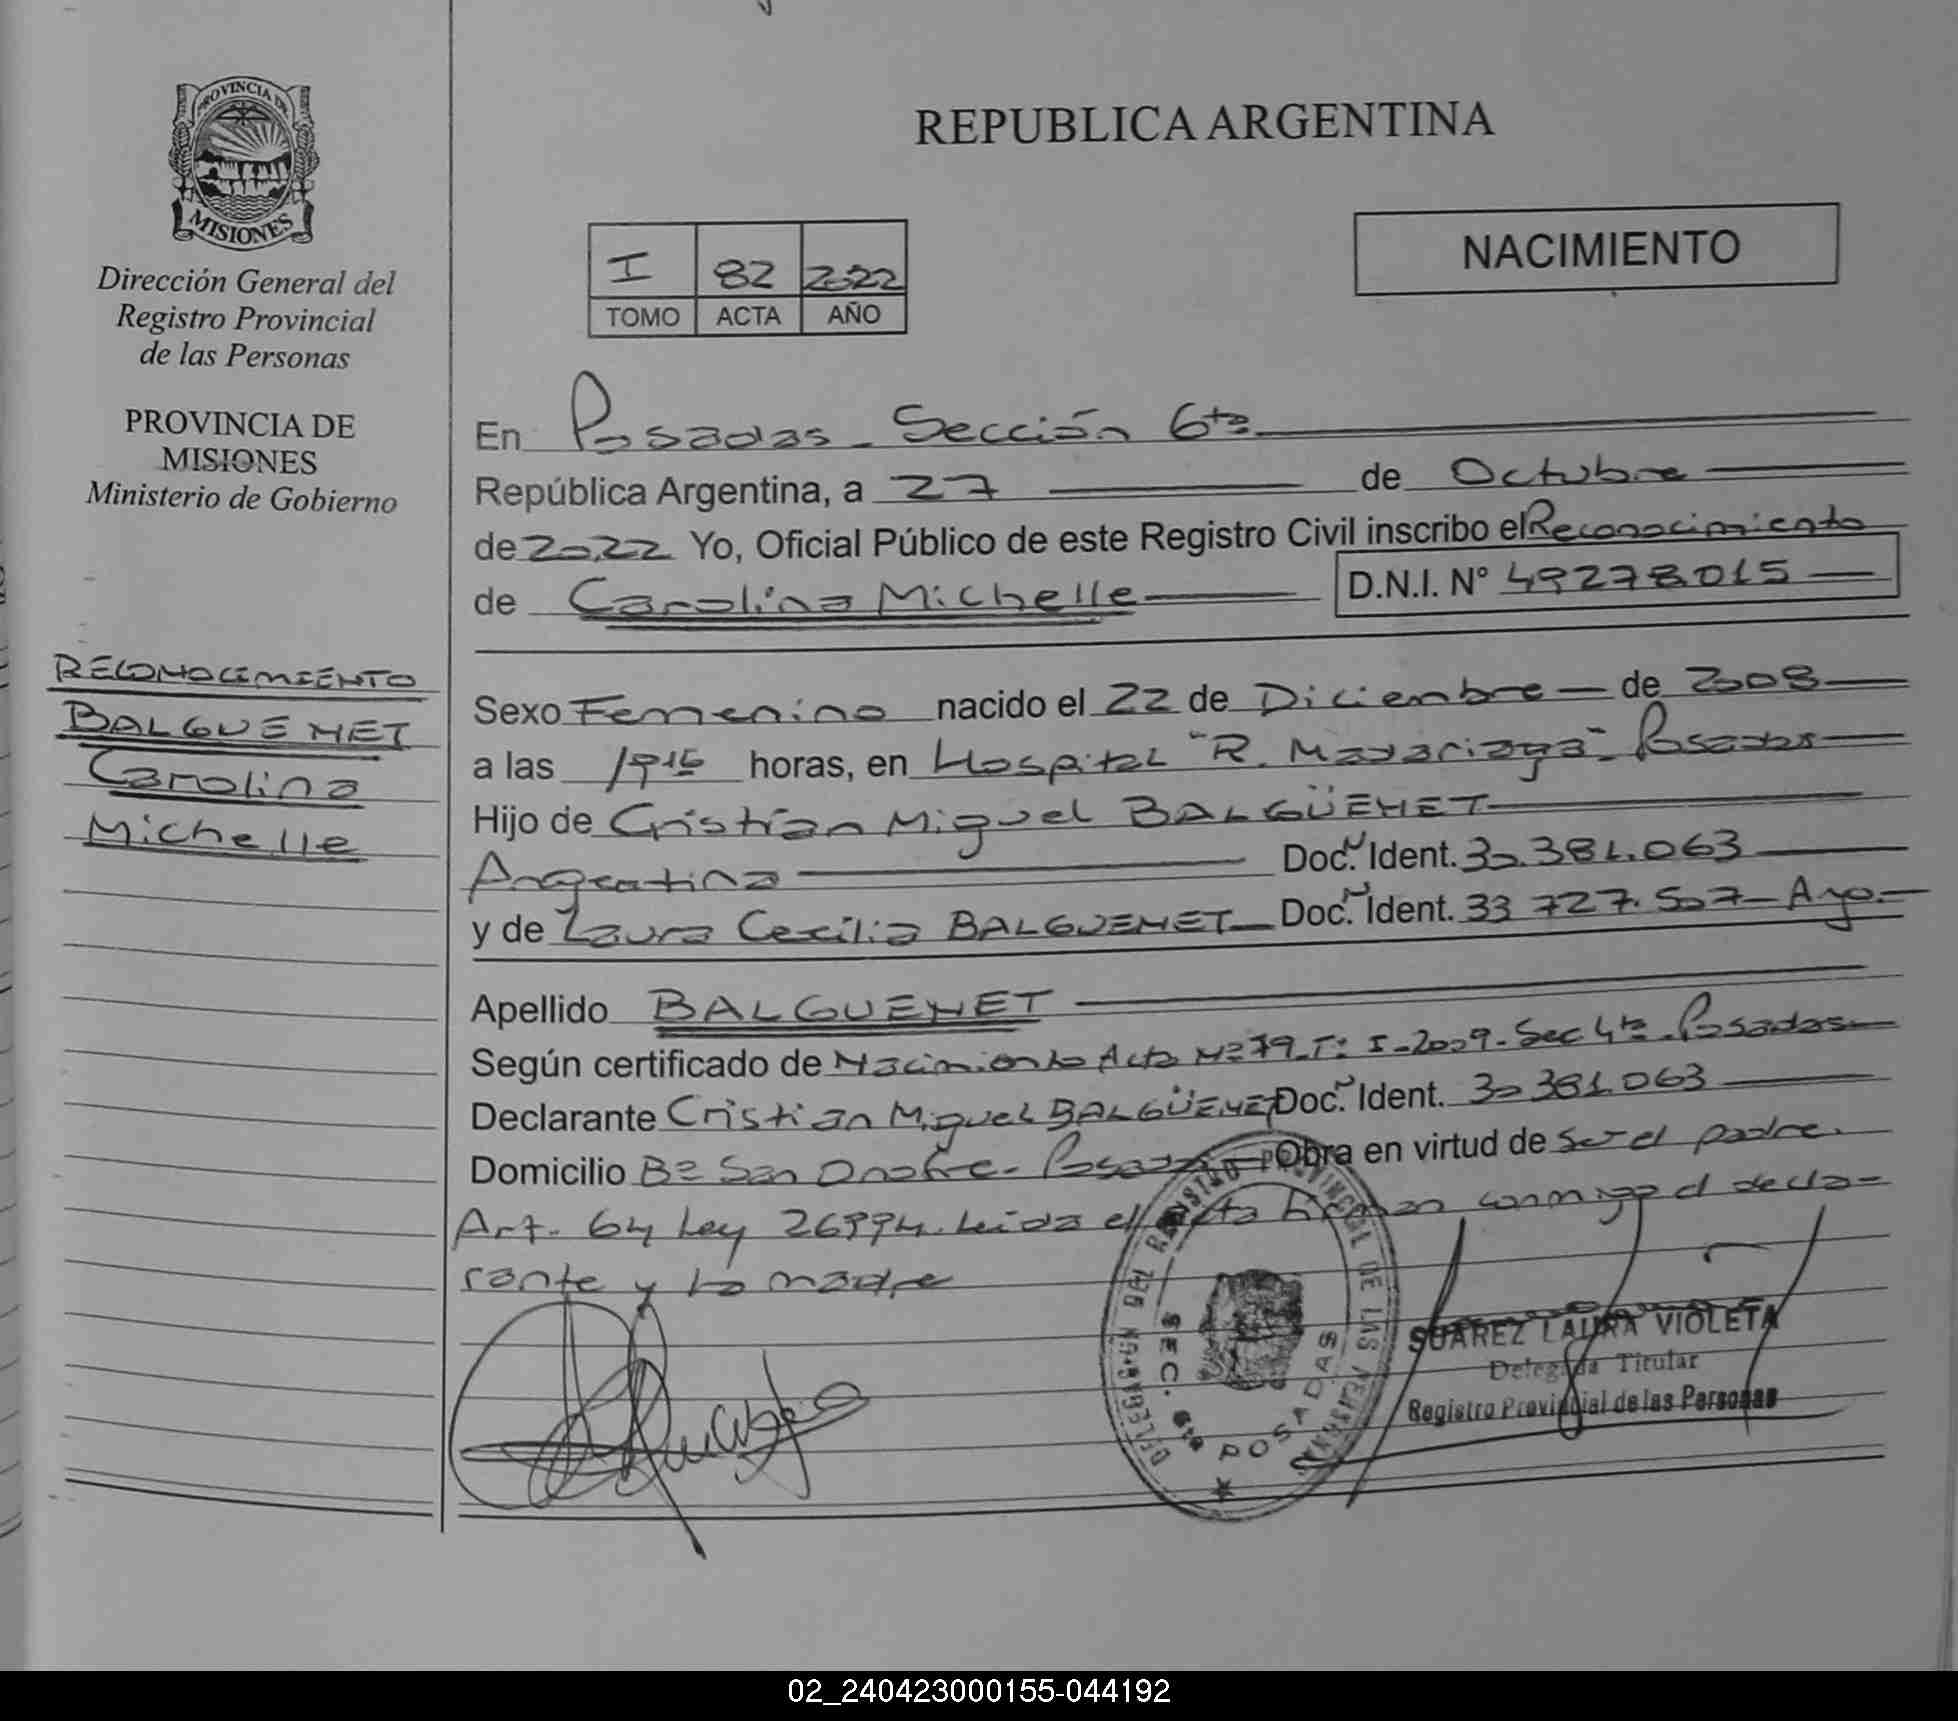 PROVINCIA DE
MISIONES
Dirección General del
Registro Provincial
de las Personas
PROVINCIA DE
MISIONES
Ministerio de Gobierno
RECONOCIMIENTO
BALGUENET
Carolina
Michelle
REPUBLICA ARGENTINA
I 82 2022
TOMO ACTA AÑO
NACIMIENTO
En Posadas - Sección 6ta
República Argentina, a 27 de Octubre
de 2022 Yo, Oficial Público de este Registro Civil inscribo el Reconocimiento
de Carolina Michelle D.N.I. N° 49278.015
Sexo Femenino nacido el 22 de Diciembre de 2008
a las 19 15 horas, en Hospital "R. Madariaga" - Posadas
Hijo de Cristian Miguel BALGÜENET
Argentina Doc. Ident. 30.381.063
y de Laura Cecilia BALGUENET Doc. Ident. 33 727.507 - Arg.
Apellido BALGUENET
Según certificado de Nacimiento Acta Nº 79 - Tº I - 2009 - Sec 4ta - Posadas
Declarante Cristian Miguel BALGÜENET Doc. Ident. 30 381.063
Domicilio Bº San Onofre - Posadas Obra en virtud de ser el padre.
Art. 64 Ley 26994. Leida el Acta firman conmigo el decla-
rante y la madre
DELEGACIÓN DEL REGISTRO PROVINCIAL DE LAS PERSONAS
SEC. 6ta POSADAS
SUAREZ LAURA VIOLETA
Delegada Titular
Registro Provincial de las Personas
02_240423000155-044192